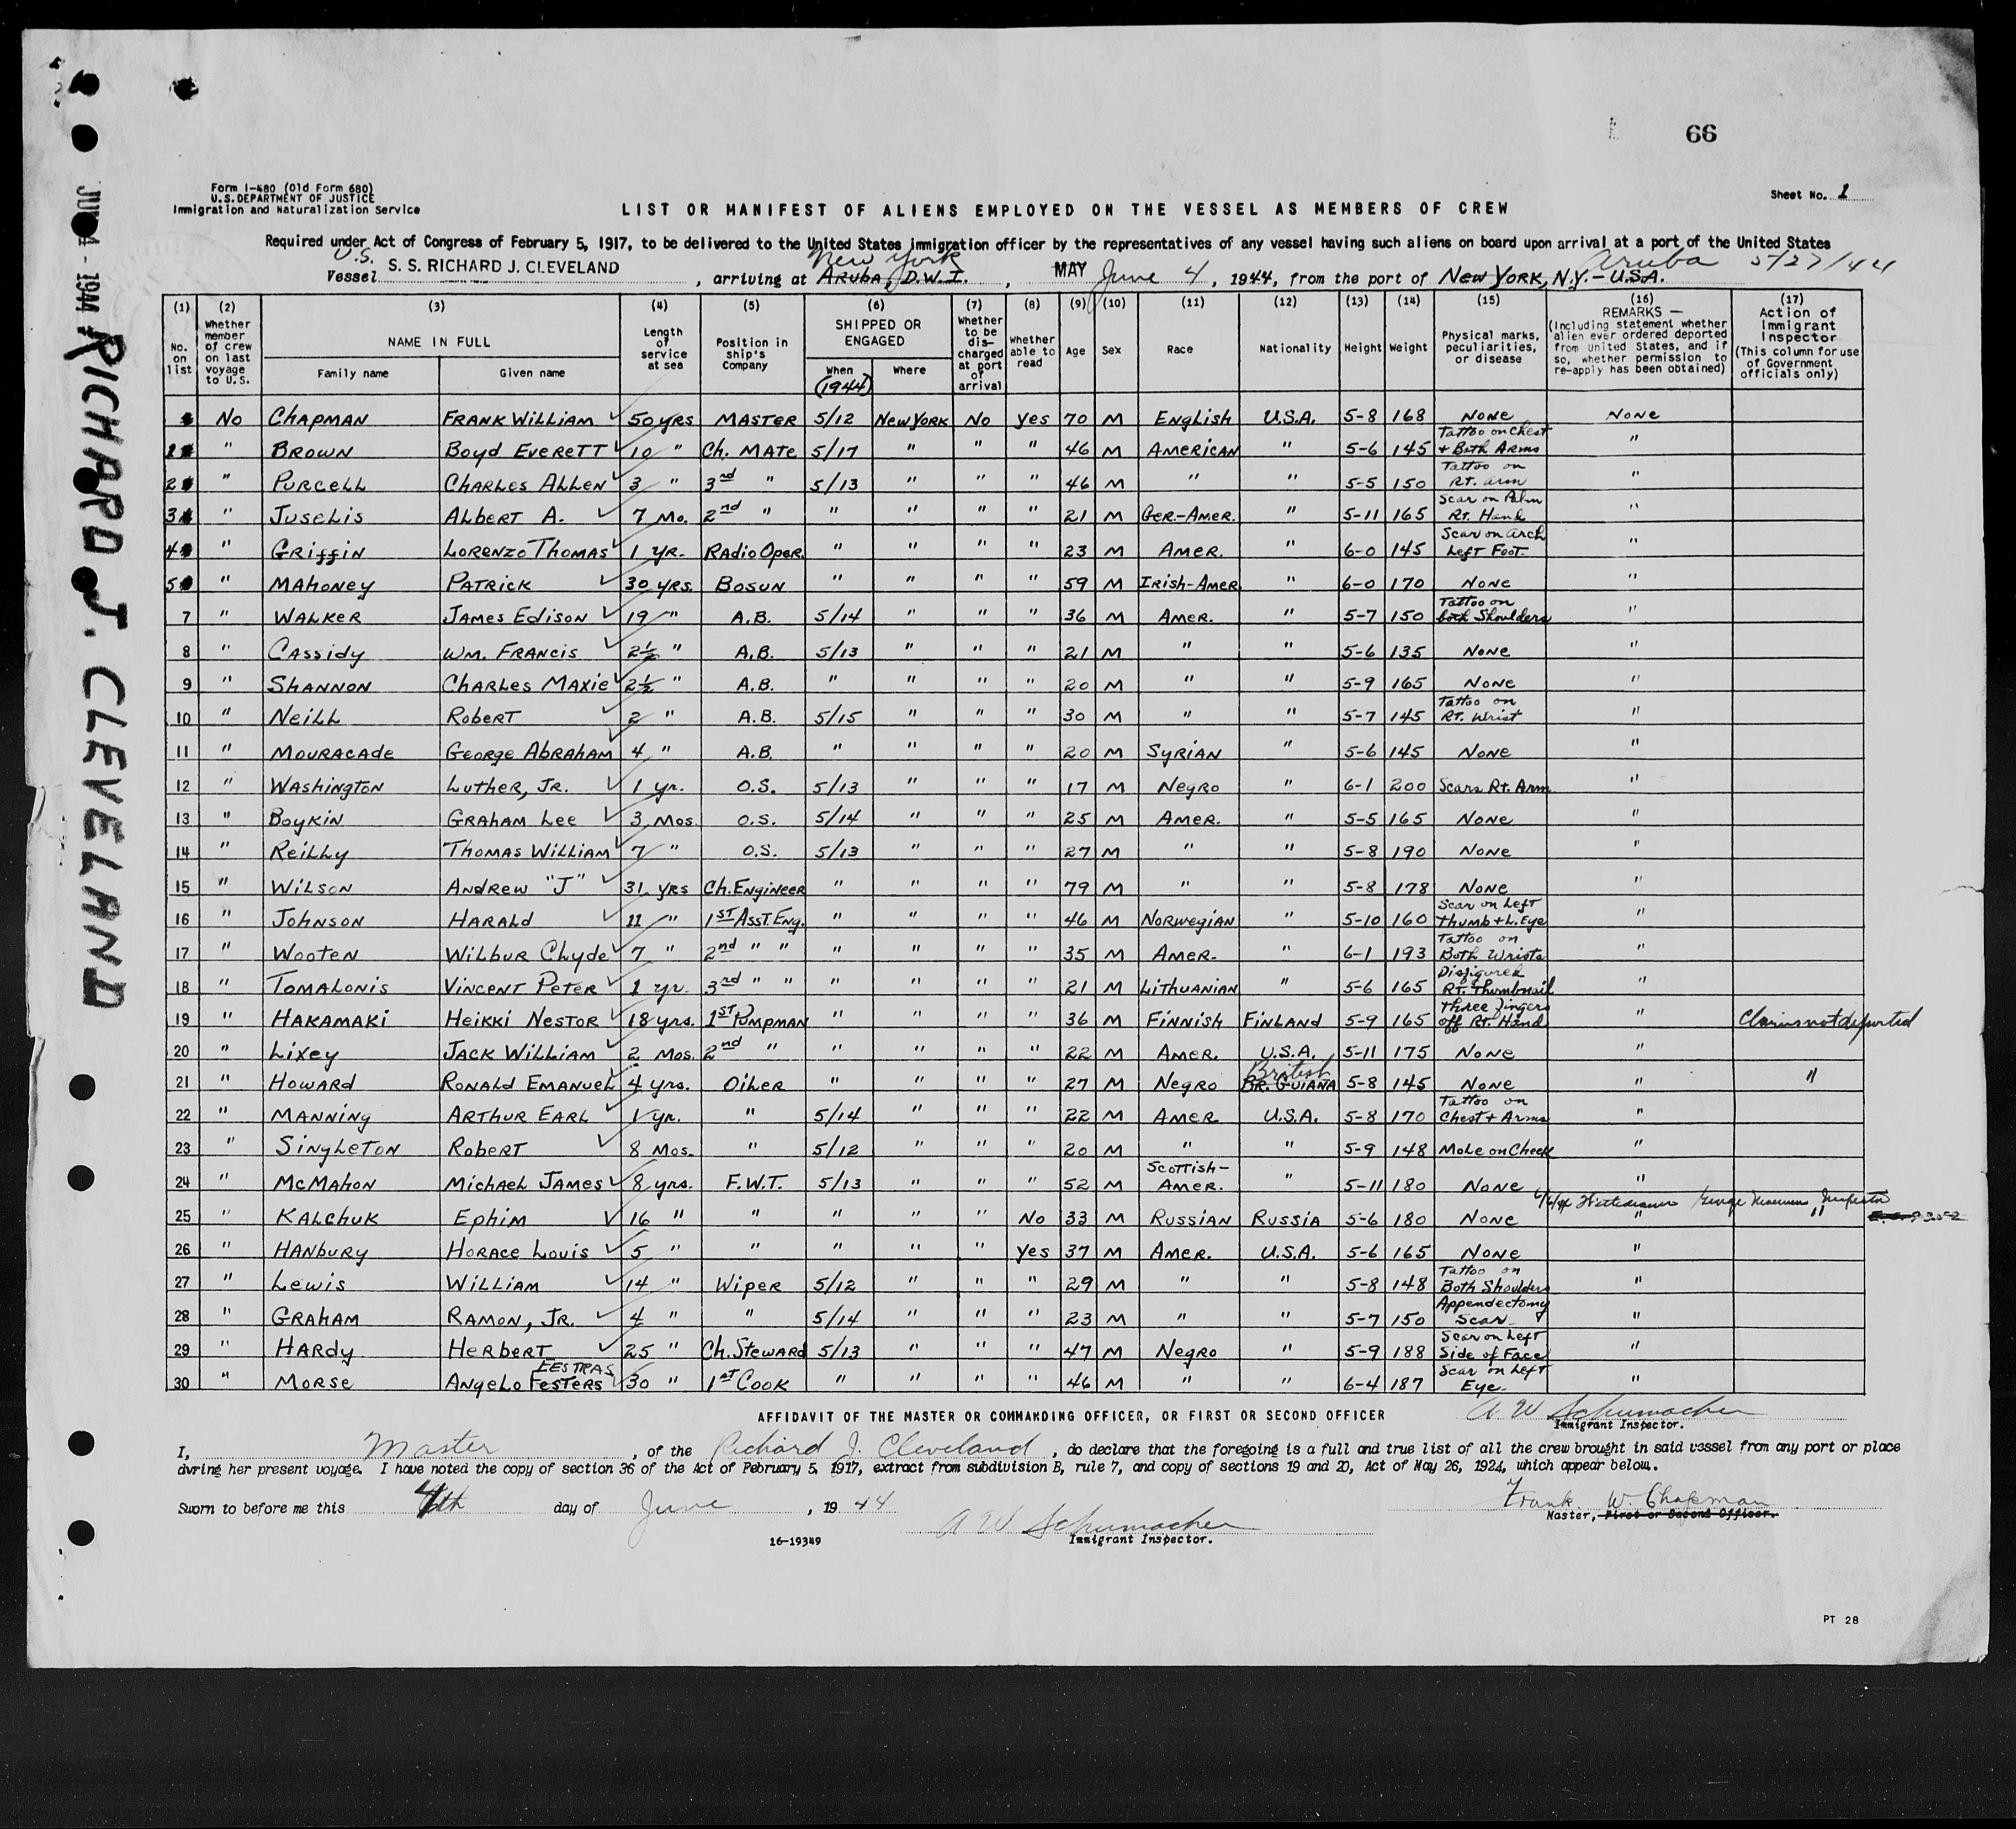 66
Form I-480 (Old Form 680)
U.S. DEPARTMENT OF JUSTICE
Immigration and Naturalization Service
Sheet No. 1
LIST OR MANIFEST OF ALIENS EMPLOYED ON THE VESSEL AS MEMBERS OF CREW
Required under Act of Congress of February 5, 1917, to be delivered to the United States immigration officer by the representatives of any vessel having such aliens on board upon arrival at a port of the United States
U.S. New York Aruba 5/27/44
Vessel S. S. RICHARD J. CLEVELAND, arriving at ARUBA, D.W.I., MAY June 4, 1944, from the port of NEW YORK, N.Y.-U.S.A.
(1) (2) (3) (4) (5) (6) (7) (8) (9) (10) (11) (12) (13) (14) (15) (16) (17)
No. on list
Whether member of crew on last voyage to U.S.
NAME IN FULL
Family name
Given name
Length of service at sea
Position in ship's Company
SHIPPED OR ENGAGED
When (1944)
Where
Whether to be discharged at port of arrival
Whether able to read
Age
Sex
Race
Nationality
Height
Weight
Physical marks, peculiarities, or disease
REMARKS — (Including statement whether alien ever ordered deported from United States, and if so, whether permission to re-apply has been obtained)
Action of Immigrant Inspector (This column for use of Government officials only)
No CHAPMAN FRANK WILLIAM 50 yrs MASTER 5/12 New York No yes 70 M English U.S.A. 5-8 168 None None
1 " BROWN Boyd Everett 10 " Ch. MATE 5/17 " " " 46 M AMERICAN " 5-6 145 Tattoo on chest + Both Arms "
2 " PURCELL CHARLES ALLEN 3 " 3rd " 5/13 " " " 46 M " " 5-5 150 Tattoo on Rt. arm "
3 " Juselis Albert A. 7 Mo. 2nd " " " " " 21 M Ger.-Amer. " 5-11 165 Scar on Palm Rt. Hand "
4 " Griffin Lorenzo Thomas 1 yr. Radio Oper. " " " " 23 M Amer. " 6-0 145 Scar on Arch Left Foot "
5 " Mahoney Patrick 30 yrs. Bosun " " " " 59 M Irish-Amer. " 6-0 170 None "
7 " Walker James Edison 19 " A.B. 5/14 " " " 36 M Amer. " 5-7 150 Tattoo on both Shoulders "
8 " Cassidy Wm. Francis 2½ " A.B. 5/13 " " " 21 M " " 5-6 135 None "
9 " Shannon Charles Maxie 2½ " A.B. " " " " 20 M " " 5-9 165 None "
10 " Neill Robert 2 " A.B. 5/15 " " " 30 M " " 5-7 145 Tattoo on Rt. Wrist "
11 " Mouracade George Abraham 4 " A.B. " " " " 20 M Syrian " 5-6 145 None "
12 " Washington Luther, Jr. 1 yr. O.S. 5/13 " " " 17 M Negro " 6-1 200 Scars Rt. Arm "
13 " Boykin Graham Lee 3 Mos. O.S. 5/14 " " " 25 M Amer. " 5-5 165 None "
14 " Reilly Thomas William 7 " O.S. 5/13 " " " 27 M " " 5-8 190 None "
15 " Wilson Andrew "J" 31 yrs Ch. Engineer " " " " 79 M " " 5-8 178 None "
16 " Johnson Harald 11 " 1st Asst. Eng. " " " " 46 M Norwegian " 5-10 160 Scar on Left Thumb + L. Eye "
17 " Wooten Wilbur Clyde 7 " 2nd " " " " " " 35 M Amer. " 6-1 193 Tattoo on Both Wrists "
18 " Tomalonis Vincent Peter 1 yr. 3rd " " " " " " 21 M Lithuanian " 5-6 165 Disfigured Rt. Thumbnail "
19 " Hakamaki Heikki Nestor 18 yrs. 1st Pumpman " " " " 36 M Finnish Finland 5-9 165 Three fingers off Rt. Hand " Claims not deported
20 " Lixey Jack William 2 Mos. 2nd " " " " " 22 M Amer. U.S.A. 5-11 175 None "
21 " Howard Ronald Emanuel 4 yrs. Oiler " " " " 27 M Negro British Br. Guiana 5-8 145 None " "
22 " Manning Arthur Earl 1 yr. " 5/14 " " " 22 M Amer U.S.A. 5-8 170 Tattoo on Chest + Arms "
23 " Singleton Robert 8 Mos. " 5/12 " " " 20 M " " 5-9 148 Mole on Cheek "
24 " McMahon Michael James 8 yrs. F.W.T. 5/13 " " " 52 M Scottish-Amer. " 5-11 180 None "
25 " Kalchuk Ephim 16 " " " " " No 33 M Russian Russia 5-6 180 None " "
26 " Hanbury Horace Louis 5 " " " " " yes 37 M Amer. U.S.A. 5-6 165 None "
27 " Lewis William 14 " Wiper 5/12 " " " 29 M " " 5-8 148 Tattoo on Both Shoulders "
28 " Graham Ramon, Jr. 4 " " 5/14 " " " 23 M " " 5-7 150 Appendectomy Scar "
29 " Hardy Herbert 25 " Ch. Steward 5/13 " " " 47 M Negro " 5-9 188 Scar on Left Side of Face "
30 " Morse Angelo Festers EESTRAS 30 " 1st Cook " " " " 46 M " " 6-4 187 Scar on Left Eye. "
AFFIDAVIT OF THE MASTER OR COMMANDING OFFICER, OR FIRST OR SECOND OFFICER
A W Schumacher
Immigrant Inspector.
I, Master, of the Richard J. Cleveland, do declare that the foregoing is a full and true list of all the crew brought in said vessel from any port or place
during her present voyage. I have noted the copy of section 36 of the Act of February 5, 1917, extract from subdivision B, rule 7, and copy of sections 19 and 20, Act of May 26, 1924, which appear below.
Sworn to before me this 4th day of June, 1944
Frank W. Chapman
Master, First or Second Officer.
A W Schumacher
Immigrant Inspector.
16-19349
PT 28
JUN 4 - 1944
RICHARD J. CLEVELAND